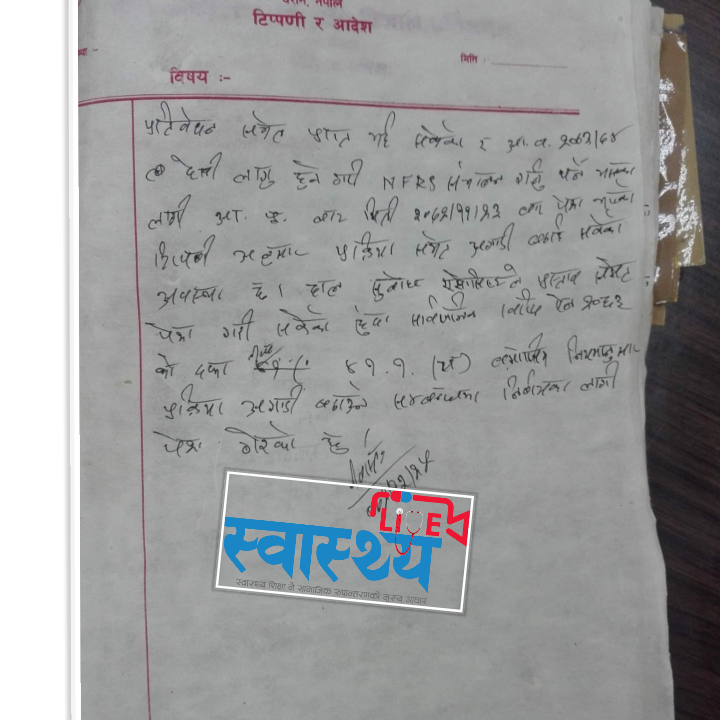 धरान, नेपाल
टिप्पणी र आदेश
मिति :
विषय :-
प्रतिवेदन समेत प्राप्त भई सकेको र आ.व. २०७३/७४
देखी लागु हुने गरी NFRS संचालन गर्नु पर्ने भएका
लागी आ. प्र. बाट मिति २०७२/११/२३ मा पेश भएको
टिप्पणी अनुसार प्रक्रिया समेत अगाडी बढाई सकेको
अवस्था छ । हाल सुवोध एसोसियटले प्रस्ताव समेत
पेश गरी सकेको हुँदा सार्वजनिक खरिद ऐन २०६३
को दफा ४१.१. (घ) बमोजिम नियमानुसार
प्रक्रिया अगाडी बढाउने सम्बन्धमा निर्णयका लागी
पेश गरेको छु ।
LiVE
स्वास्थ्य
स्वास्थ्य शिक्षा नै सामाजिक रुपान्तरणको मुख्य आधार